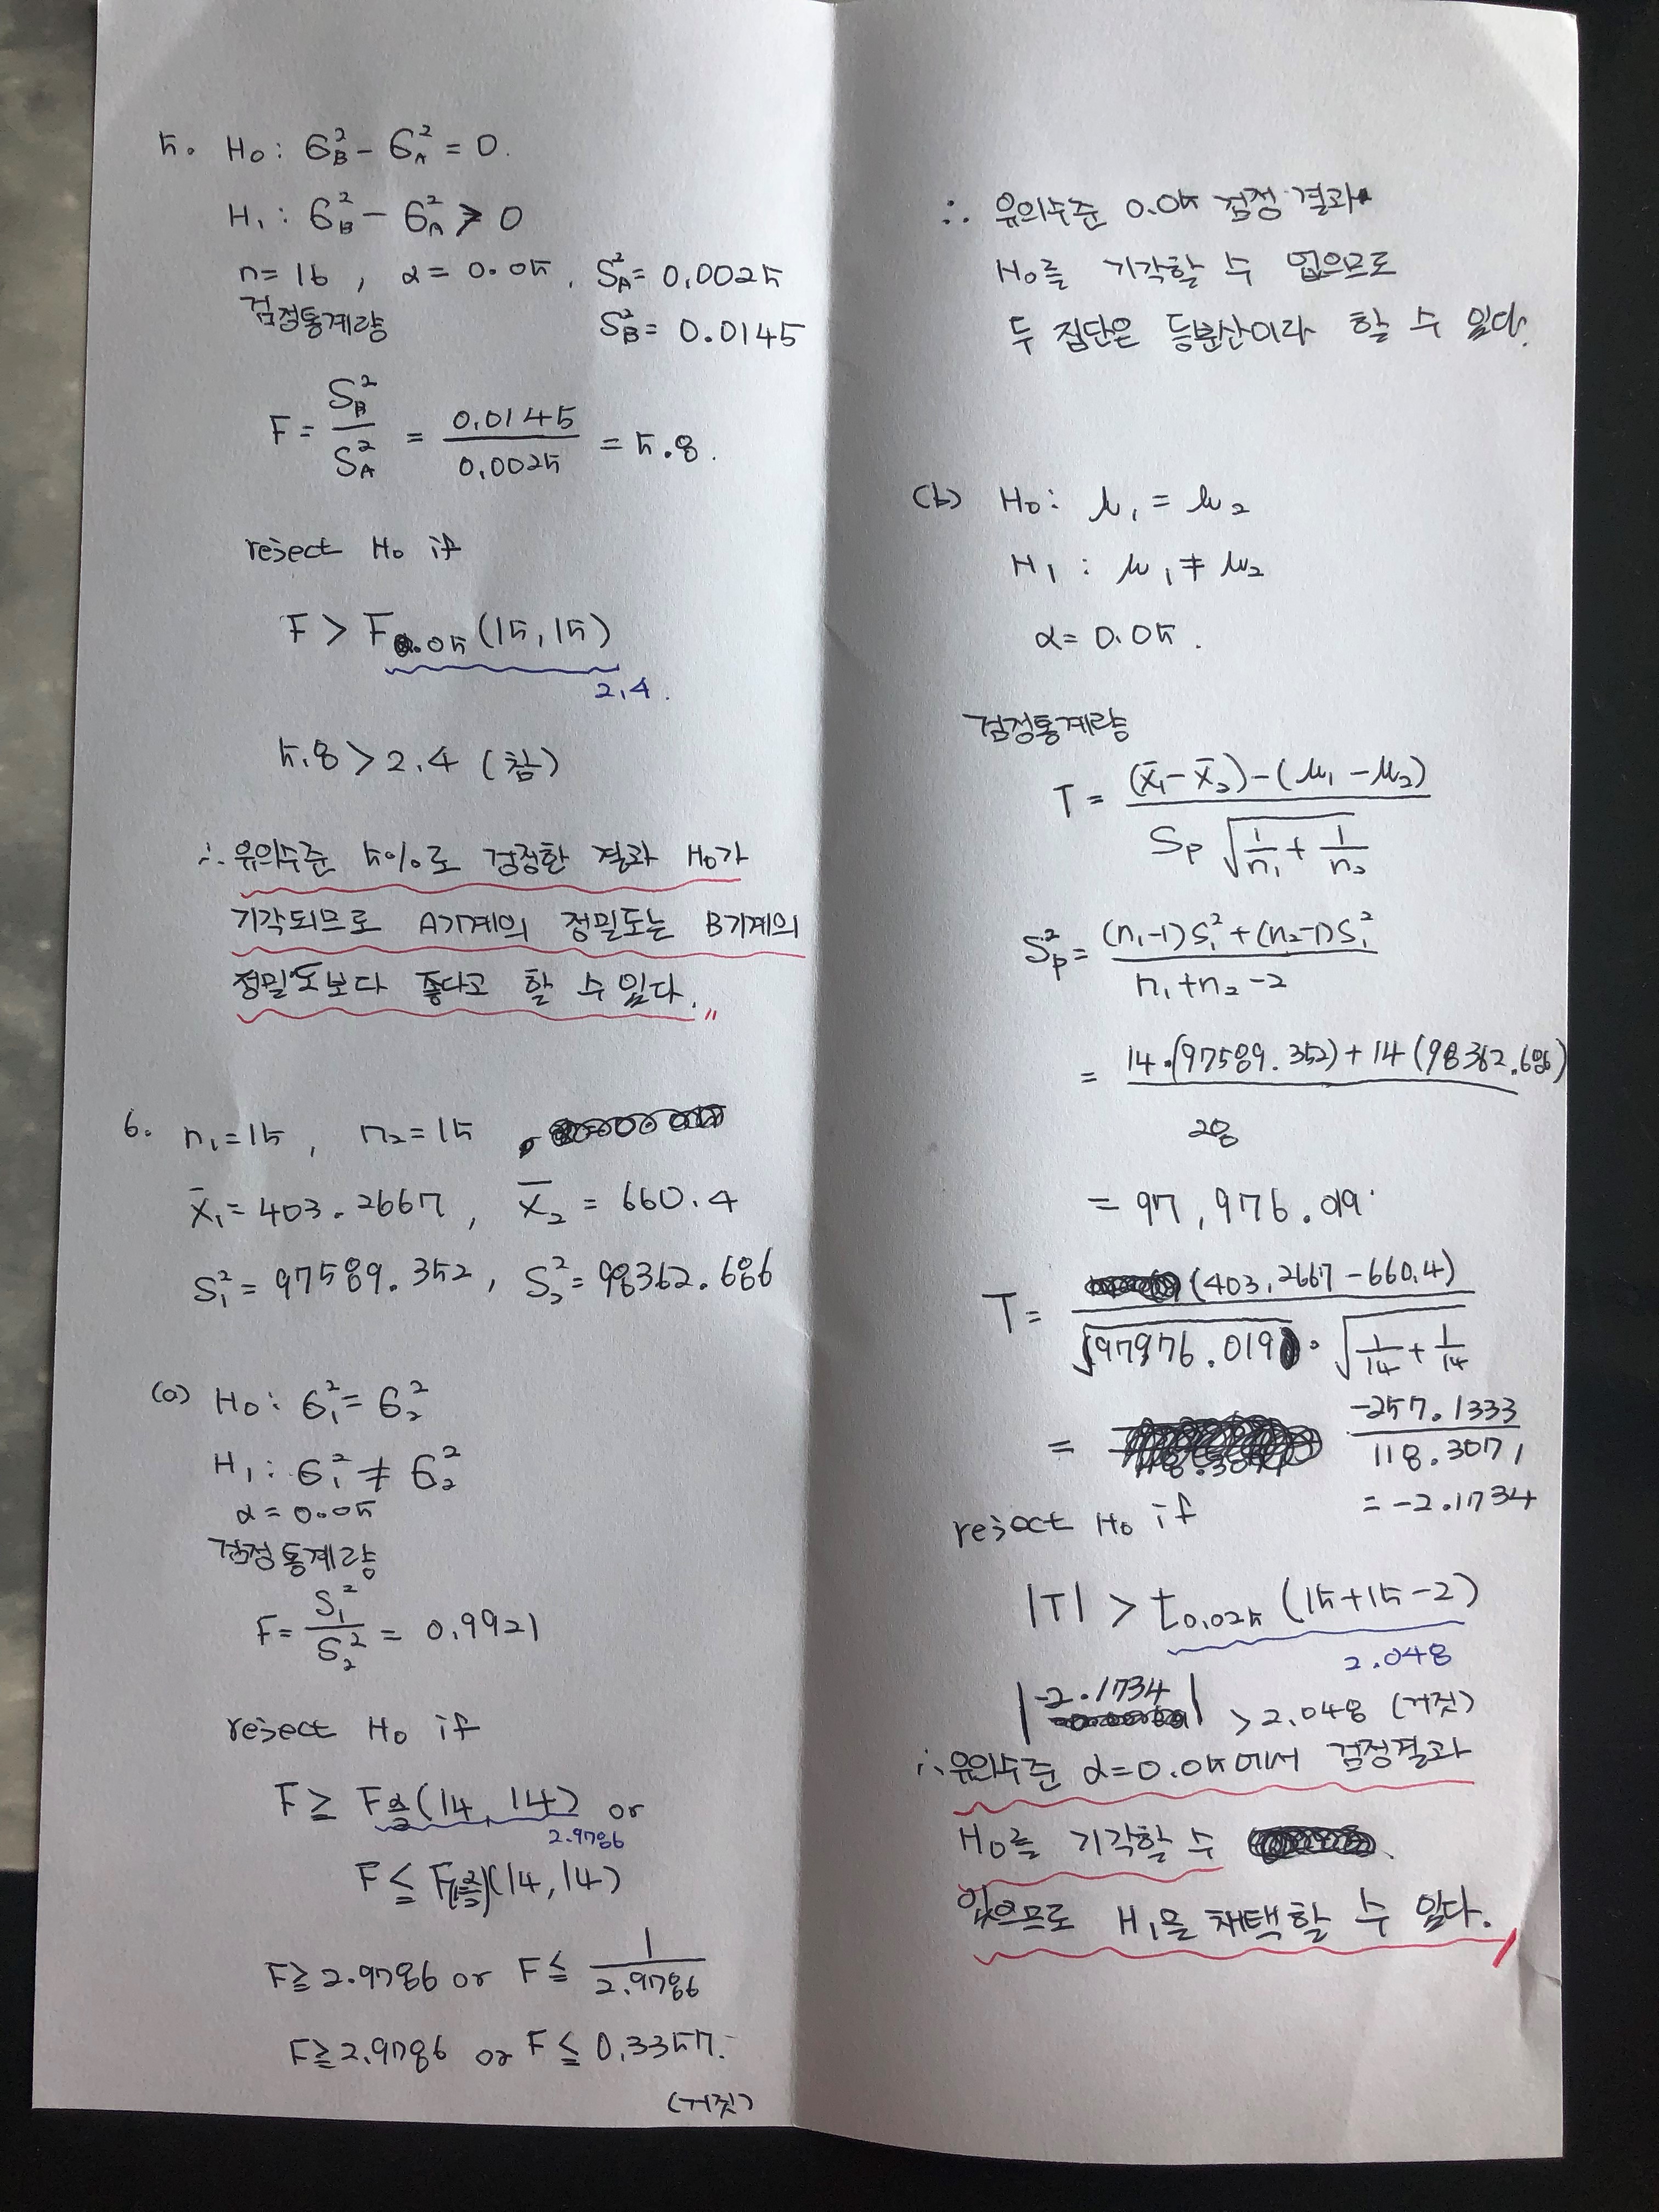 5. H₀: σ_B² - σ_A² = 0.
H₁: σ_B² - σ_A² > 0
n=16, α=0.05, S_A²=0.0025
검정통계량 S_B²=0.0145
F = S_B²/S_A² = 0.0145/0.0025 = 5.8.
reject H₀ if
F > F0.05 (15, 15)
2.4.
5.8 > 2.4 (참)
∴ 유의수준 5%로 검정한 결과 H₀가
기각되므로 A기계의 정밀도는 B기계의
정밀도보다 좋다고 할 수 있다.
6. n₁=15, n₂=15
x̄₁=403.2667, x̄₂=660.4
S₁²=97589.352, S₂²=98362.686
(a) H₀: σ₁²=σ₂²
H₁: σ₁²≠σ₂²
α=0.05
검정통계량
F = S₁²/S₂² = 0.9921
reject H₀ if
F ≥ F_α/2 (14, 14) or
2.9786
F ≤ F_(1-α/2) (14, 14)
F≥2.9786 or F≤ 1/2.9786
F≥2.9786 or F≤0.3357.
(거짓)
∴ 유의수준 0.05 검정결과
H₀를 기각할 수 없으므로
두 집단은 등분산이라 할 수 있다.
(b) H₀: μ₁ = μ₂
H₁: μ₁ ≠ μ₂
α=0.05.
검정통계량
T = ((x̄₁-x̄₂)-(μ₁-μ₂))/(Sp √(1/n₁+1/n₂))
Sp² = ((n₁-1)S₁²+(n₂-1)S₁²)/(n₁+n₂-2)
= (14·(97589.352)+14(98362.686))/28
= 97,976.019
T = (403.2667-660.4)/(√97976.019 · √(1/14+1/14))
= -257.1333/118.3071
= -2.1734
reject H₀ if
|T| > t0.025 (15+15-2)
2.048
|-2.1734| > 2.048 (거짓)
∴ 유의수준 α=0.05에서 검정결과
H₀를 기각할 수
없으므로 H₁을 채택할 수 있다.